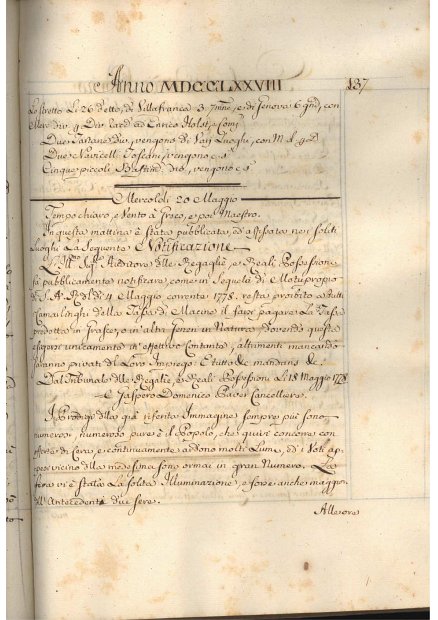 Anno MDCCLXXVIII 137
Lo Stretto li 26 detto, di Villafranca 3. , e di Genova 6. , con
Merc. div. ad Enrico Holst, e Comp.
Due Tartane Div. vengono di Varj Luoghi, con M. e D
Due Navicelli Toscani, vengono c. s.
Cinque piccoli Bastim. div. vengono c. s.
Mercoledì 20 Maggio
Tempo chiaro, e Vento a Greco, e poi Maestro.
In questa mattina è stata pubblicata, ed affissata nei soliti
Luoghi La Seguente Notificazione
L'Ill. Sig. Auditore delle Regalie, e Reali Possessioni
fà pubblicamente notificare come in Sequela di Motuproprio
di S. A. R. del dì 4 Maggio corrente 1778. resta proibito a tutti
Camarlinghi della Tassa di Macine il farsi pagare La Tassa
predetta in Grasce, o in altri Generi in Natura, dovendo questa
esigersi unicamente in effettivo Contante, altrimenti mancando
saranno privati del Loro Impiego: E tutto & mandans &.
Dal Tribunale delle Regalie, e Reali Possessioni Li 18 Maggio 1778
Gaspero Domenico Paver Cancelliere.
I Prodigj della già riferita Immagine sempre più sono
numerosi, numeroso pure è il Popolo, che quivi concorre con
offerte di Cera, e continuamente ardono molti Lumi, ed i Voti ap-
pesi vicino alla medesima sono ormai in gran Numero. La
sera vi è stata La solita Illuminazione, e forse anche maggio
dell'Antecedenti due sere.
Alle ore